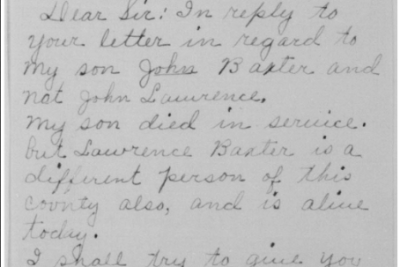 Dear Sir: In reply to
your letter in regard to
my son John Baxter and
not John Lawrence.
My son died in service.
but Lawrence Baxter is a
different person of this
county also, and is alive
today.
I shall try to give you